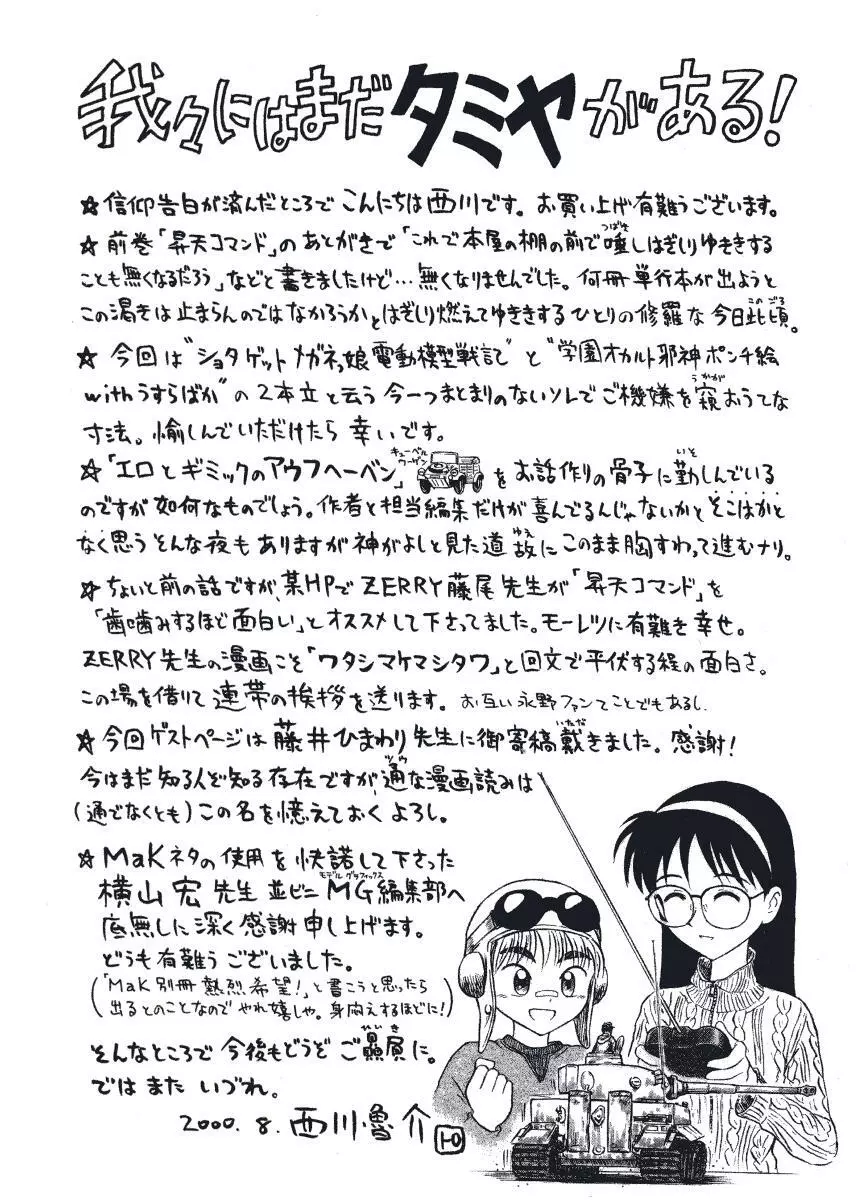 我々にはまだタミヤがある!
☆信仰告白が済んだところでこんにちは西川です。お買い上げ有難うございます。
☆前巻「昇天コマンド」のあとがきで「これで本屋の棚の前で唾しはぎしりゆききする
ことも無くなるだろう」などと書きましたけど…無くなりませんでした。何冊単行本が出ようと
この渇きは止まらんのではなかろうかとはぎしり燃えてゆききするひとりの修羅な今日此頃。
☆今回は"ショタゲットメガネっ娘電動模型戦記"と"学園オカルト邪神ポンチ絵
withうすらばか"の2本立と云う今一つまとまりのないソレでご機嫌を窺おうてな
寸法。愉しんでいただけたら幸いです。
☆「エロとギミックのアウフヘーベン」キューベルワーゲンをお話作りの骨子に勤しんでいる
のですが如何なものでしょう。作者と担当編集だけが喜んでるんじゃないかとそこはかと
なく思うそんな夜もありますが神がよしと見た道故にこのまま胸すわって進むナリ。
☆ちょいと前の話ですが、某HPでZERRY藤尾先生が「昇天コマンド」を
「歯噛みするほど面白い」とオススメして下さってました。モーレツに有難き幸せ。
ZERRY先生の漫画こそ「ワタシマケマシタワ」と回文で平伏する程の面白さ。
この場を借りて連帯の挨拶を送ります。お互い永野ファンてことでもあるし。
☆今回ゲストページは藤井ひまわり先生に御寄稿戴きました。感謝!
今はまだ知る人ぞ知る存在ですが、通な漫画読みは
(通でなくとも)この名を憶えておくよろし。
☆MaKネタの使用を快諾して下さった
横山宏先生並ビニMG編集部へ
底無しに深く感謝申し上げます。
どうも有難うございました。
(「MaK別冊熱烈希望!」と書こうと思ったら
出るとのことなのでやれ嬉しや。身悶えするほどに!)
そんなところで今後もどうぞご贔屓に。
ではまたいづれ。
2000.8.西川魯介